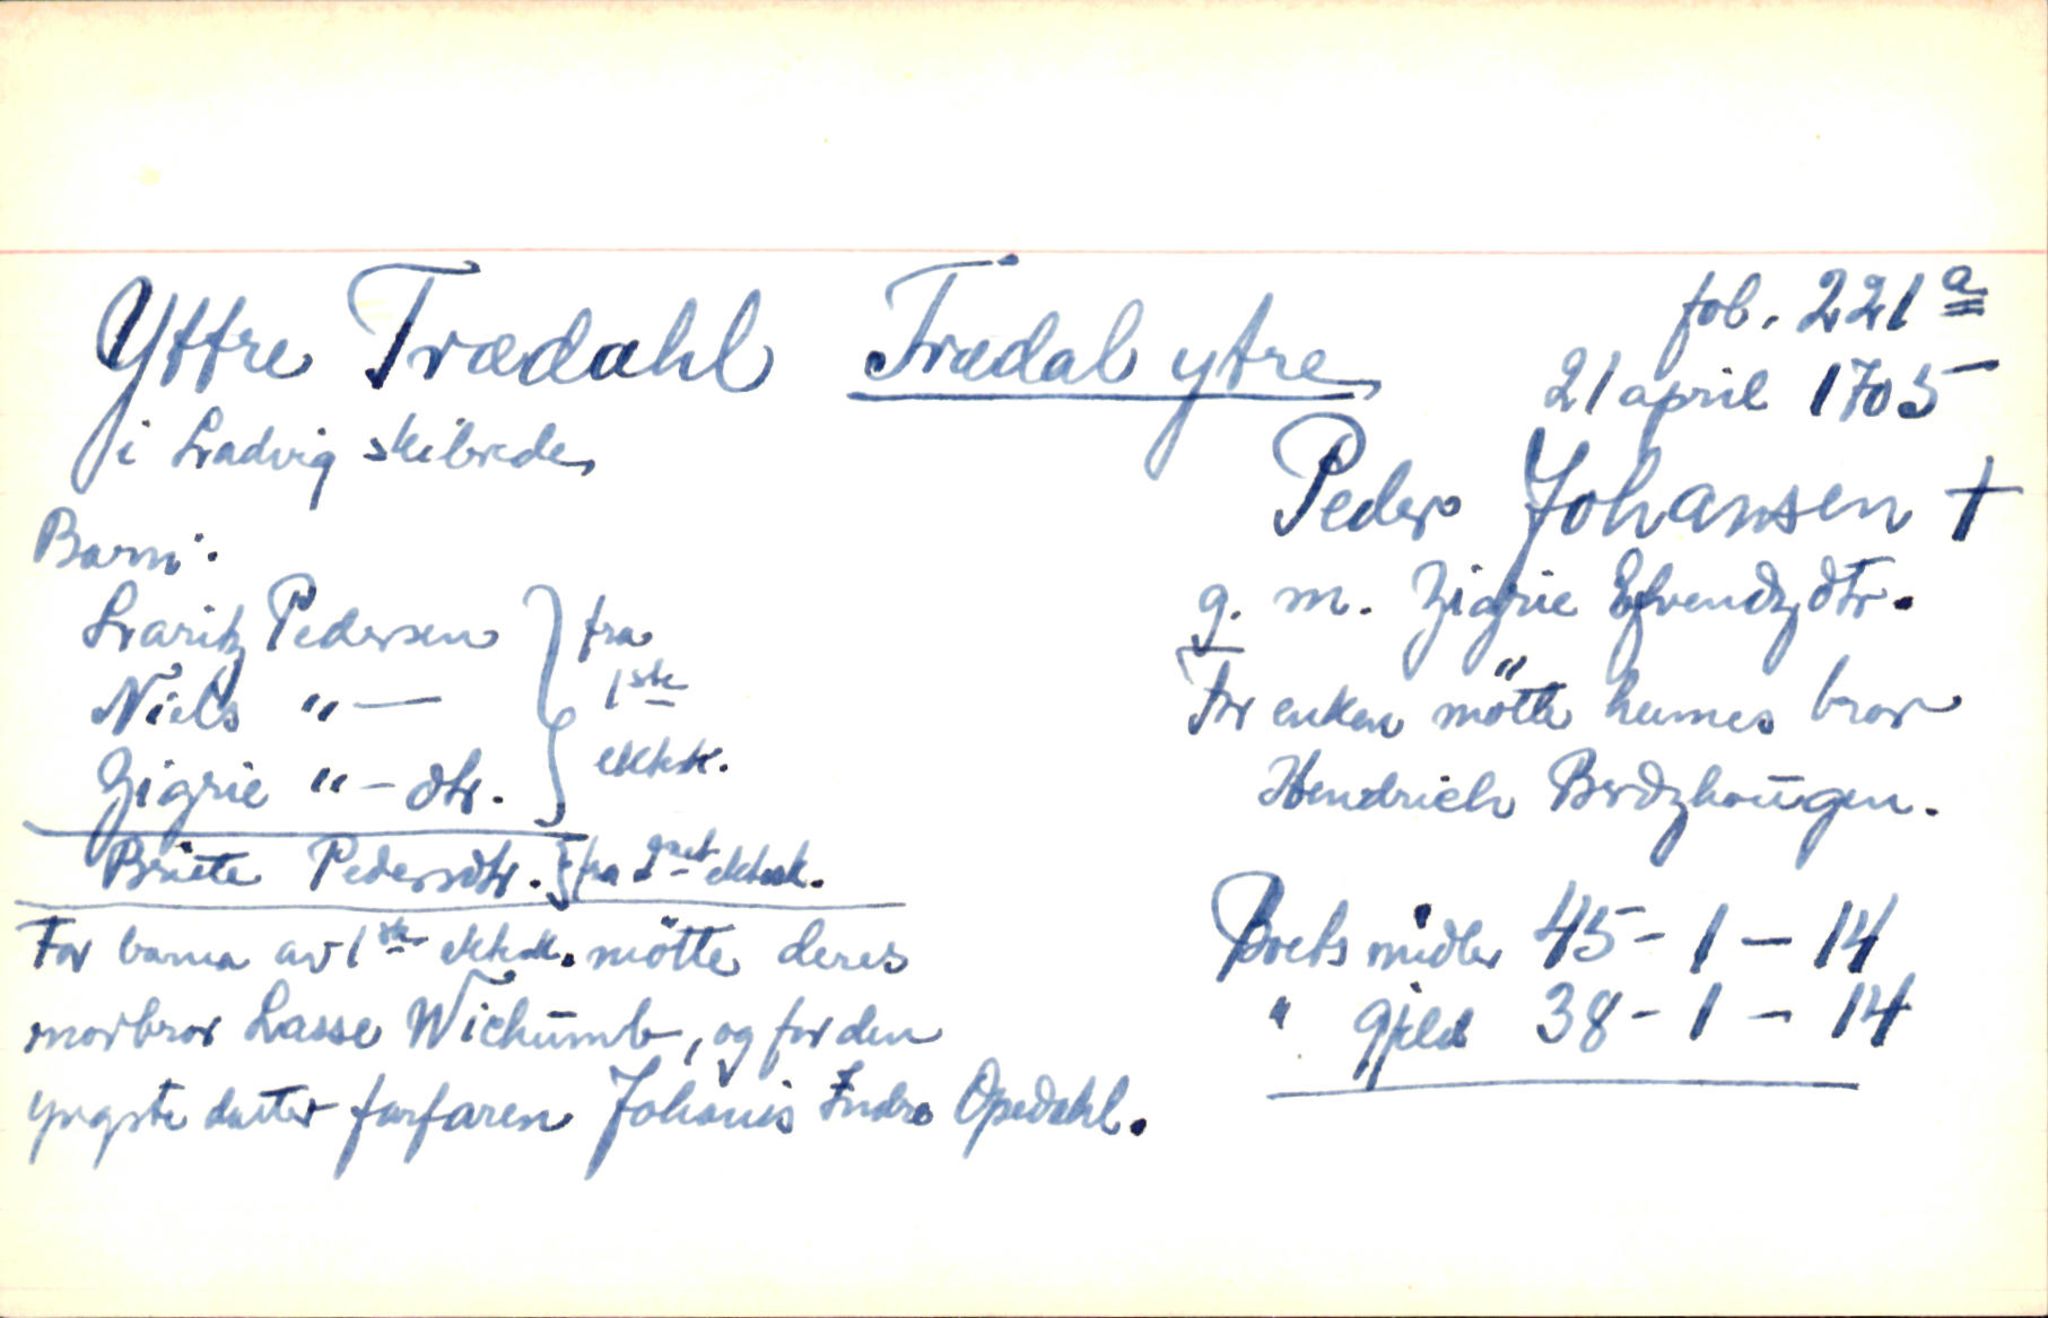 Yttre Trædahl Trædal ytre fol. 221 a
i Ladvig skibrede 21 april 1705
Peder Johansen †
Barn:
g. m. Zigrie Efvendzdtr.
Lraritz Pedersen } fra
Niels " — 1ste
For enken møtte hennes bror
Zigrie " — dtr. ekksk.
Hendrich Brdzhougen.
Briete Pedersdtr. } fra 2net ektesk.
For barna av 1ste ektsk. møtte deres
Boets midler 45 - 1 - 14
morbror Lasse Wichumb, og for den
" gjeld 38 - 1 - 14
yngste datter farfaren Johanis Indre Opedahl.